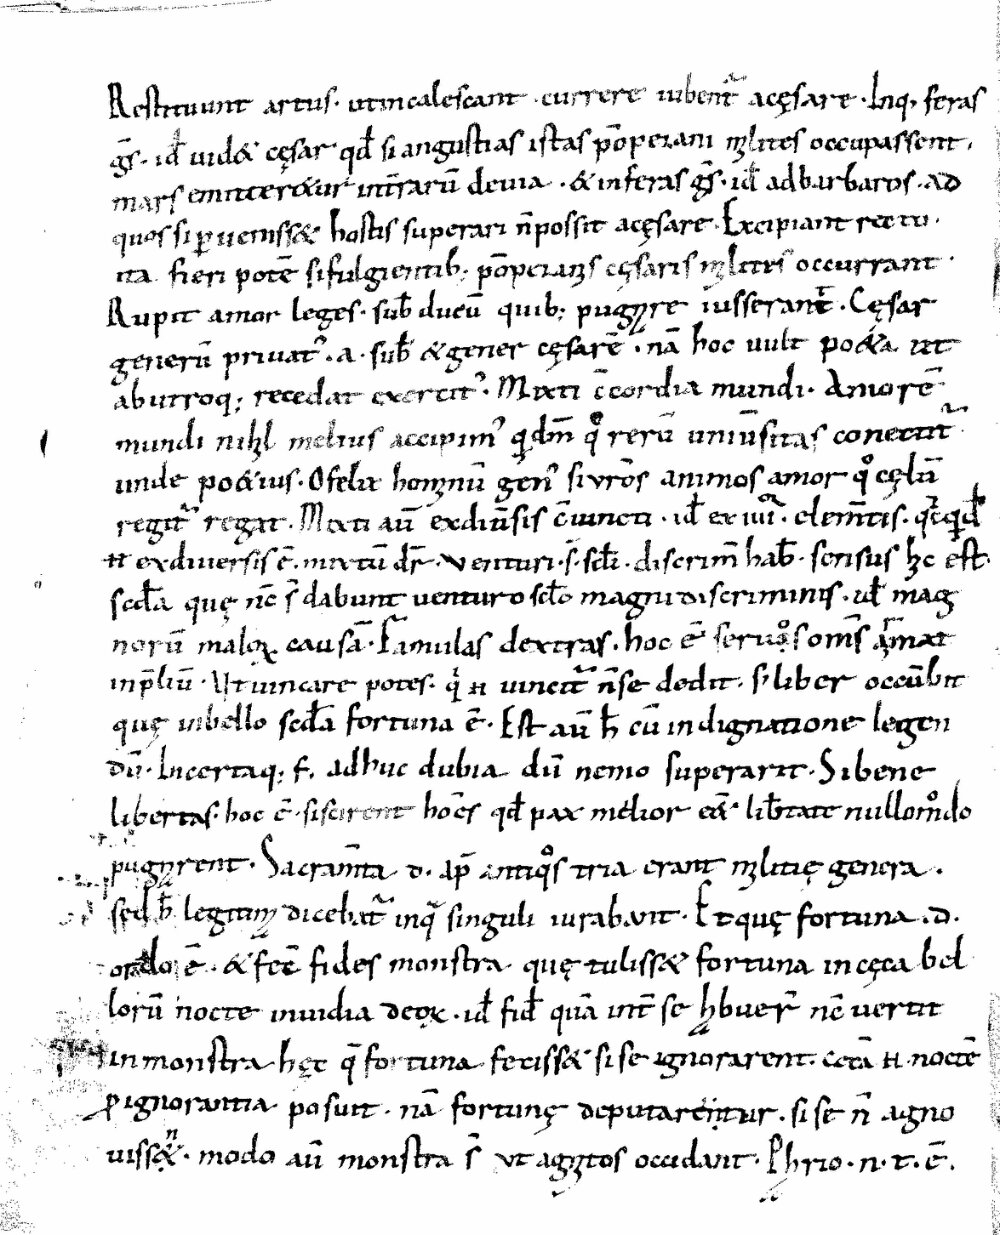 Restituunt artus · utincalescant · currere iubent᷑ acęsare · Inq, feras
gs̄ · id uid& cęsar qd̄ si angustias istas pōpeiani milites occupassent,
mars emitteret&ur int̄rarū deuia · & inferas gs̄ · id ad barbaros · ad
quos si ꝑuenisset& hostis superari n̄ possit acęsare · Excipiant rectu ·
ita fieri potē si fulgientib; pōpeianis cęsaris milites occurrant ·
Rupit amor leges · sub ducū quib; pugnare iusserant᷑ · Cęsar
generū priuat᾽ · a · sub & gener cęsarē · nā hoc uult po&a ut
abutroq; recedat exercit᾽ · Mixti c̄cordia mundi · Amorē
mundi nihil melius accipim᾽ qdm̄ qͦ rerū uniūsitas conectit᷑
unde po&ius · O felix hominū gen᾽ si uros̄ animos amor qͦ cęlū
regit᷑ regat · Mixti aū exdiūsis c̄iuncti · id ex · elem̄tis · qcqd
ñ exdiuersis ē · mixtū dr̄ · Venturi · s · scl̄i · discrim̄ hab̄ · sensus hic est ·
scd̄a quę nc̄ s̄ dabunt uenturo scl̄o magni discriminis · ul̄ mag
norū maloꝝ causā · Famulas dextras · hoc ē seruos oms̄ armat
inp̄liū · Ut uincare potes · q ñ uincit᷑ n̄ se dedit · s liber occūbit
quę inbello scd̄a fortuna ē · Est aū h̄ cū indignatione legen
dū · Incertaq; f · adhuc dubia dū nemo superarit · Si bene
libertas · hoc ē · si scirent hoēs qd̄ pax melior eēt lib̄tate nullom̊do
pugnarent · Sacram̄ta · d · ap̄ antiqͦs tria erant militię genera ·
sed h̄ legitim dicebat᷑ inq singuli iurabant · Et quę fortuna · d ·
ordo ē · & fec̄ fides monstra quę tuliss& fortuna incęca bel
lorū nocte inuidia deoꝝ · id fid quā int̄ se hbuer̄ nc̄ uertit
inmonstra hęc q̄ fortuna fecisset& si se ignorarent · c̄tā ñ noctē
ꝓ ignorantia posuit · nā fortunę deputarentur · si se n̄ agno
uiss&ⁿ · modo aū monstra s̄ ut agnitos occidant · Phrio · n · t · ē ·